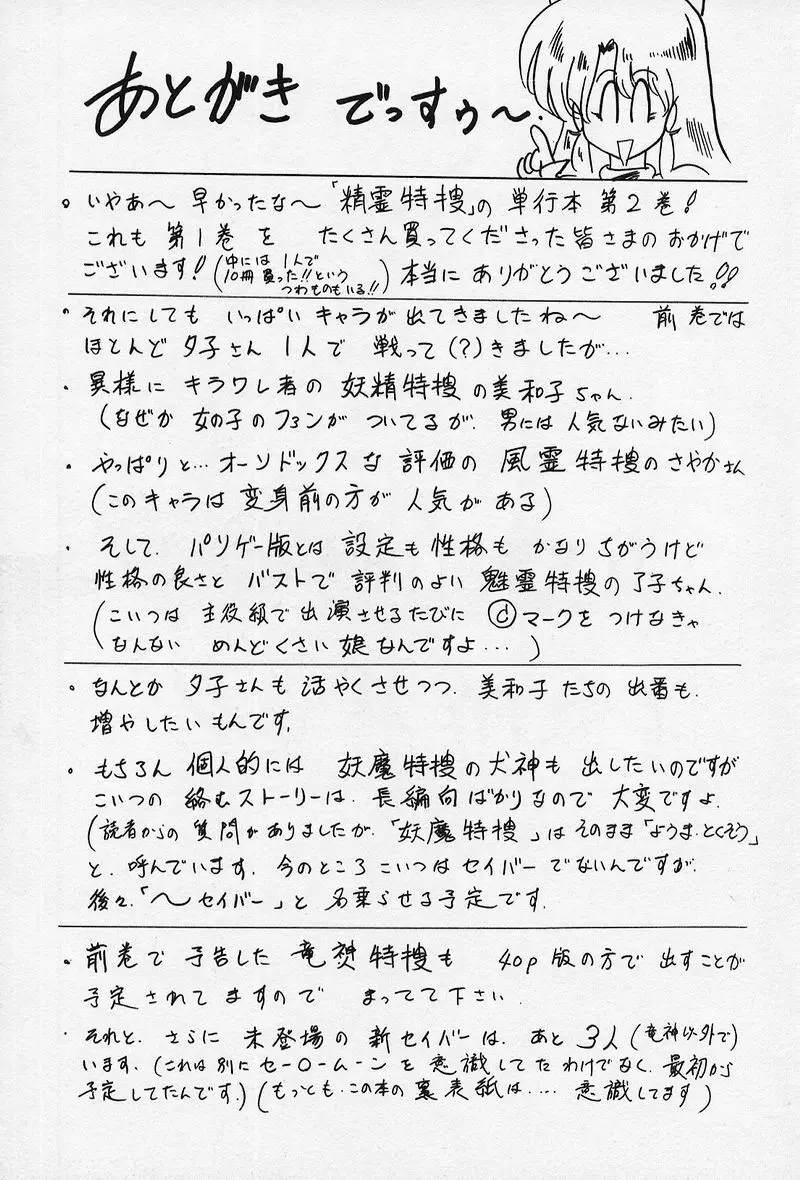 あとがき でっすぅ〜.
。いやあ〜 早かったな〜「精霊特捜」の 単行本 第2巻!
これも 第1巻 を たくさん買ってくださった皆さまの おかげで
ございます! (中には 1人で
10冊買った!!という
つわものもいる!!) 本当に ありがとうございました!!
・それにしても いっぱい キャラが 出てきましたね〜 前巻では
ほとんど 夕子さん 1人で 戦って(?)きましたが…
・異様に キラワレ者の 妖精特捜 の美和子ちゃん.
(なぜか 女の子のファンが ついてるが. 男には 人気ないみたい)
・やっぱりと… オーソドックスな 評価の 風霊特捜のさやかさん
(このキャラは 変身前の方が 人気が ある)
・そして. パソゲー版とは 設定も性格も かなりちがうけど
性格の良さと バストで 評判のよい 魅霊特捜の了子ちゃん.
(こいつは 主役級で 出演させるたびに ⓒマークを つけなきゃ
なんない めんどくさい 娘なんですよ…)
・なんとか 夕子さんも 活やくさせつつ. 美和子たちの 出番も.
増やしたいもんです.
・もちろん 個人的には 妖魔特捜の犬神も 出したいのですが
こいつの 絡むストーリーは. 長編向ばかりなので 大変ですよ.
(読者からの 質問がありましたが.「妖魔特捜」は そのまま「ようま・とくそう」
と. 呼んでいます. 今のところ こいつは セイバー でないんですが.
後々.「〜セイバー」と 名乗らせる予定です.
・前巻で 予告した 竜神特捜も 40p 版の方で 出すことが
予定されてますので まってて下さい.
・それと. さらに 未登場の 新セイバーは. あと 3人(竜神以外で)
います.(これは別に セーロームーンを 意識してたわけでなく. 最初から
予定してたんです.)(もっとも.この本の 裏表紙は.... 意識してます)